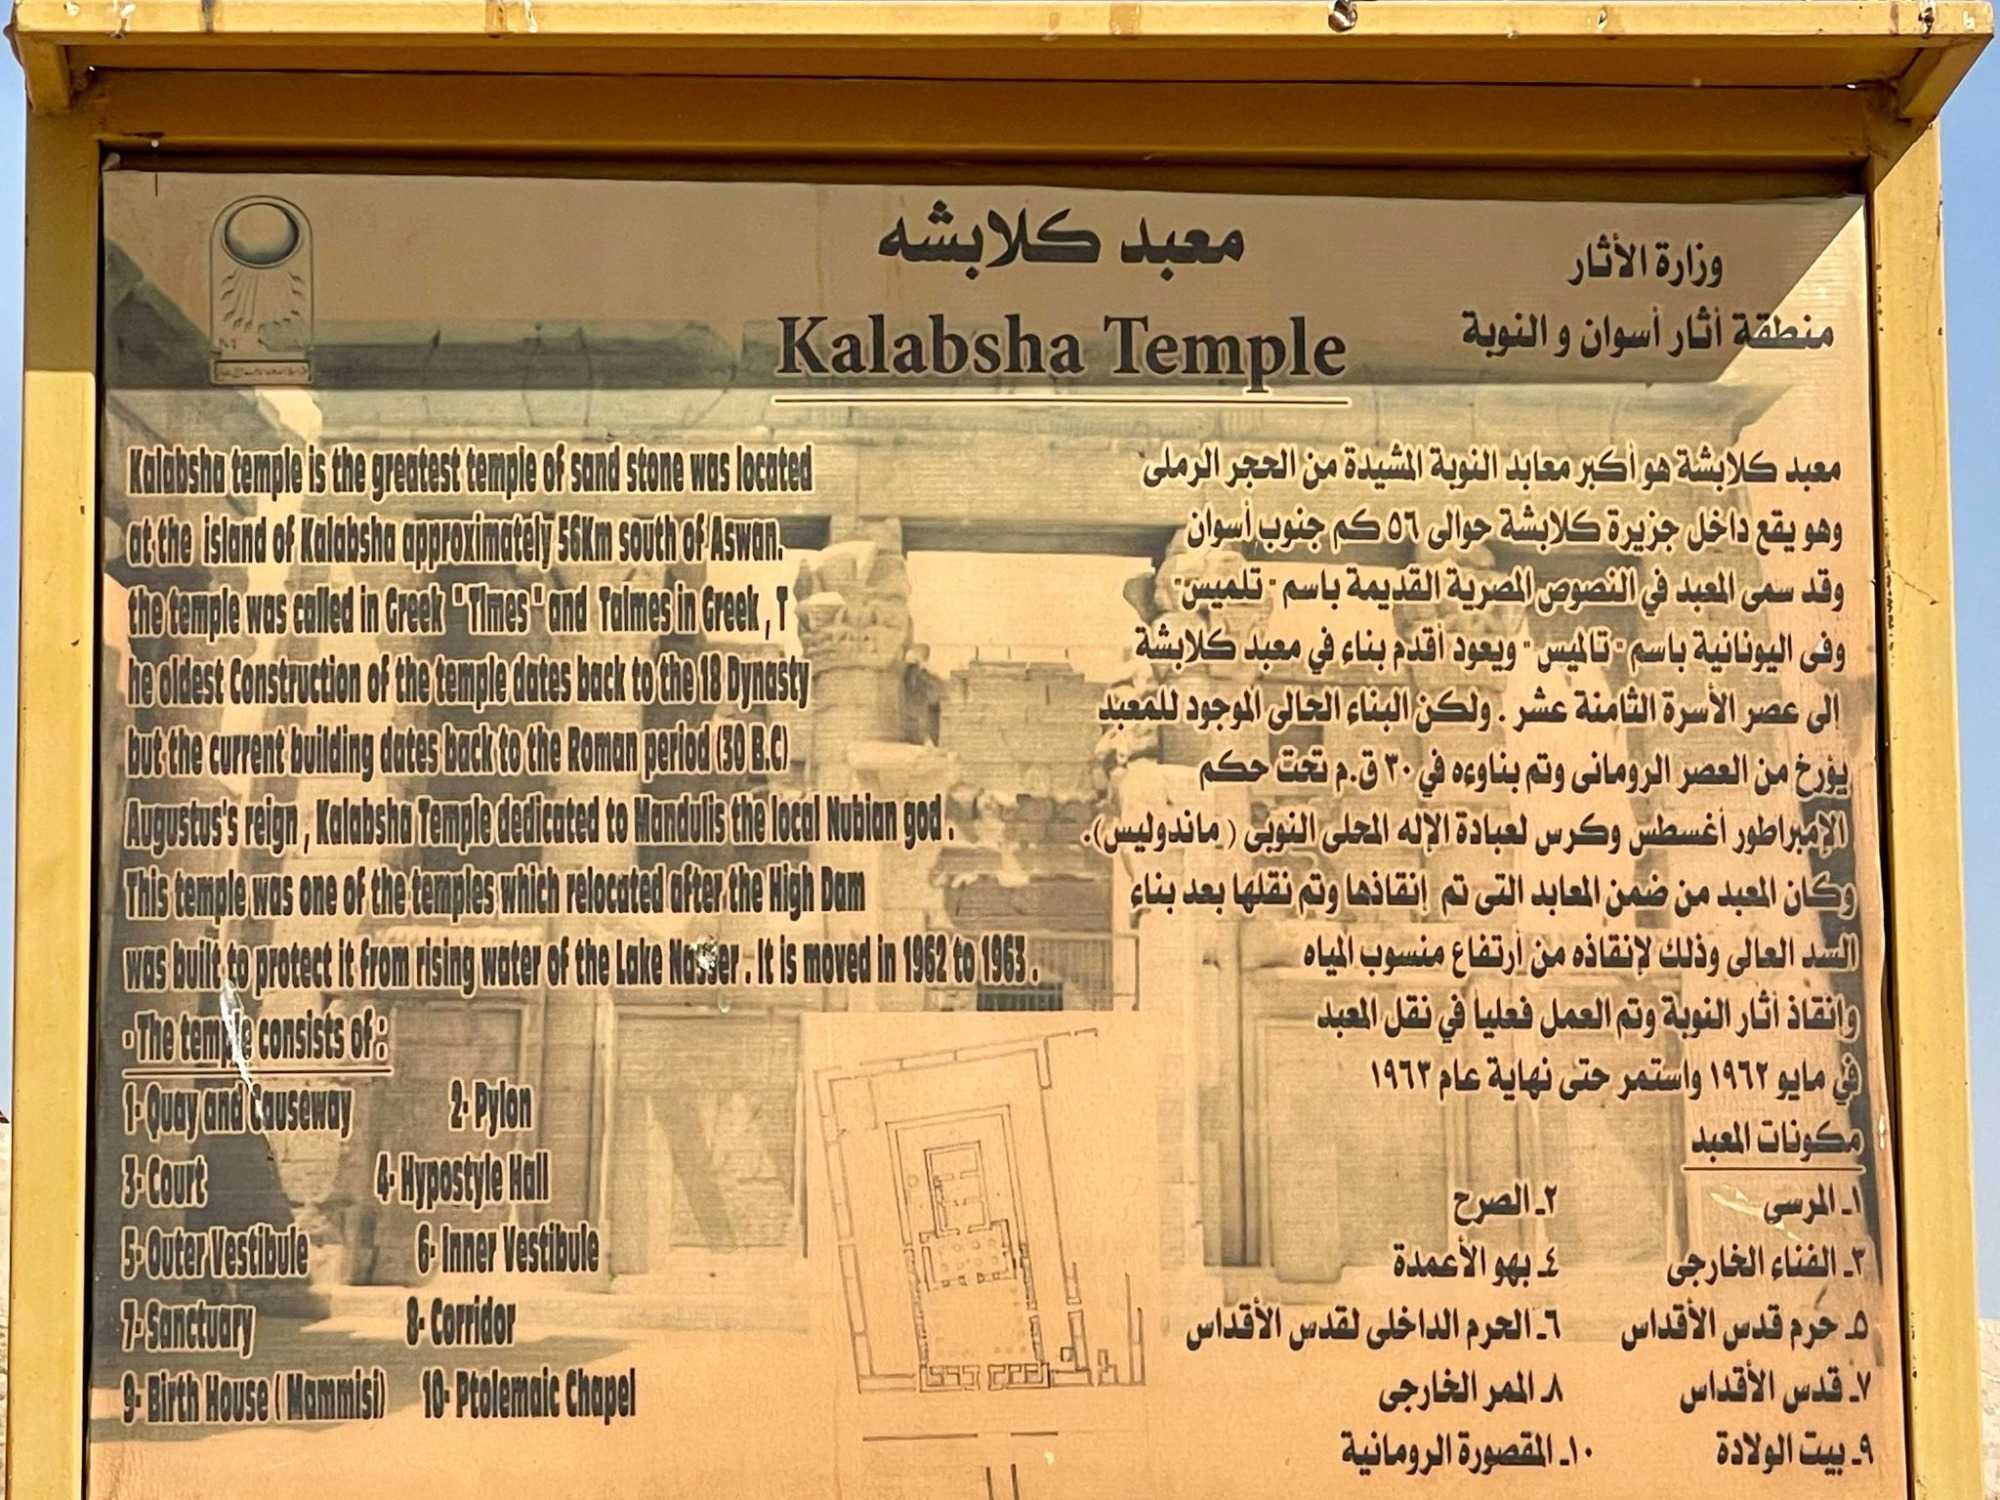 معبد كلابشه
Kalabsha Temple
وزارة الأثار
منطقة أثار أسوان و النوبة
Kalabsha temple is the greatest temple of sand stone was located
at the island of Kalabsha approximately 56Km south of Aswan.
the temple was called in Greek " Times " and Talmes in Greek , T
he oldest Construction of the temple dates back to the 18 Dynasty
but the current building dates back to the Roman period (30 B.C)
Augustus's reign , Kalabsha Temple dedicated to Mandulis the local Nubian god .
This temple was one of the temples which relocated after the High Dam
was built to protect it from rising water of the Lake Nasser . It is moved in 1962 to 1963 .
- The temple consists of :
1- Quay and Causeway 2- Pylon
3- Court 4- Hypostyle Hall
5- Outer Vestibule 6- Inner Vestibule
7- Sanctuary 8- Corridor
9- Birth House ( Mammisi) 10- Ptolemaic Chapel
معبد كلابشة هو أكبر معابد النوبة المشيدة من الحجر الرملى
وهو يقع داخل جزيرة كلابشة حوالى ٥٦ كم جنوب أسوان
وقد سمى المعبد في النصوص المصرية القديمة باسم " تلميس"
وفى اليونانية باسم " تالميس" ويعود أقدم بناء في معبد كلابشة
إلى عصر الأسرة الثامنة عشر . ولكن البناء الحالى الموجود للمعبد
يؤرخ من العصر الرومانى وتم بناوءه في ٣٠ ق.م تحت حكم
الإمبراطور أغسطس وكرس لعبادة الإله المحلى النوبى ( ماندوليس).
وكان المعبد من ضمن المعابد التى تم إنقاذها وتم نقلها بعد بناء
السد العالى وذلك لإنقاذه من أرتفاع منسوب المياه
وإنقاذ أثار النوبة وتم العمل فعلياً في نقل المعبد
في مايو ١٩٦٢ واستمر حتى نهاية عام ١٩٦٣
مكونات المعبد
١ـ المرسى ٢ـ الصرح
٣ـ الفناء الخارجى ٤ـ بهو الأعمدة
٥ـ حرم قدس الأقداس ٦ـ الحرم الداخلى لقدس الأقداس
٧ـ قدس الأقداس ٨ـ الممر الخارجى
٩ـ بيت الولادة ١٠ـ المقصورة الرومانية